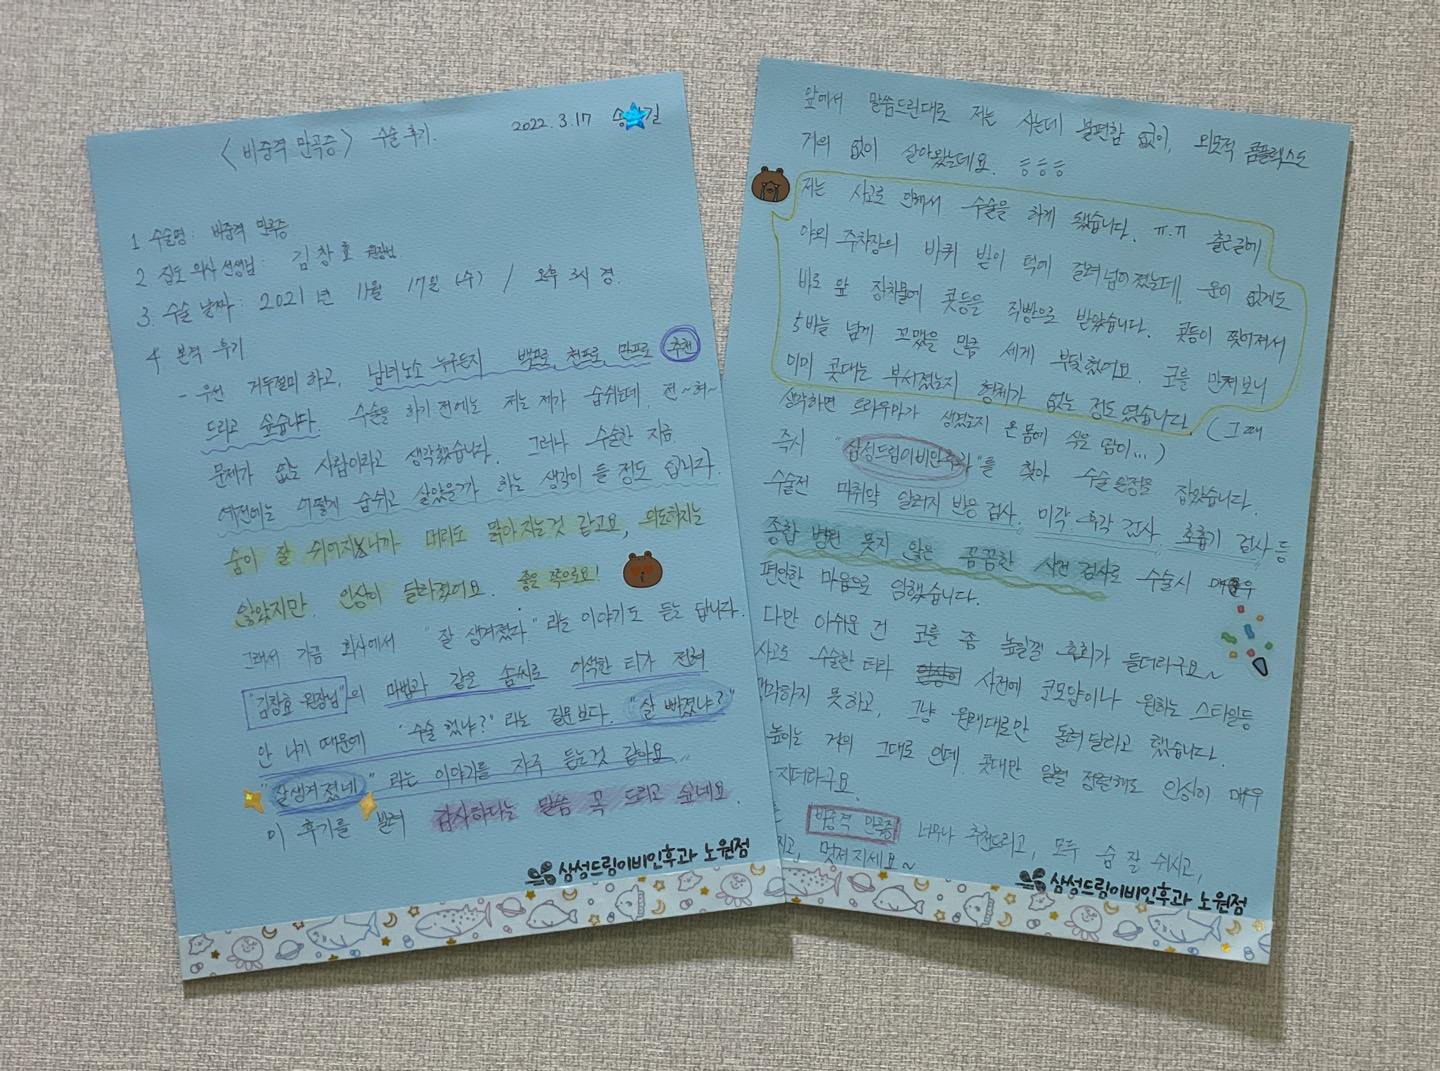 <비중격 만곡증> 수술 후기.
2022. 3. 17 송 길
1. 수술명: 비중격 만곡증
2. 집도 의사 선생님: 김창호 원장님
3. 수술 날짜: 2021년 11월 17일 (수) / 오후 3시 경.
4. 본격 후기
- 우선 거두절미 하고, 남녀노소 누구든지 백프로, 천프로, 만프로 추천
드리고 싶습니다. 수술을 하기 전에는 저는 제가 숨쉬는데 전~혀~
문제가 없는 사람이라고 생각했습니다. 그러나 수술한 지금.
예전에는 어떻게 숨쉬고 살았을까? 하는 생각이 들 정도 입니다.
숨이 잘 쉬어지니까 머리도 맑아지는것 같고요, 의도하지는
않았지만. 인상이 달라졌어요. 좋은 쪽으로요!
그래서 가끔 회사에서 "잘 생겨졌다." 라는 이야기도 듣는 답니다.
"김창호 원장님"의 마법과 같은 솜씨로 어색한 티가 전혀
안 나기 때문에 "수술 했냐?" 라는 질문보다. "살 빠졌냐?"
"잘생겨졌네" 라는 이야기를 자주 듣는것 같아요.
이 후기를 빌려 감사하다는 말씀 꼭 드리고 싶네요.
삼성드림이비인후과 노원점
앞에서 말씀드린대로 저는 사는데 불편함 없이, 외모적 콤플렉스도
거의 없이 살아왔는데요. ㅎㅎㅎ
저는 사고로 인해서 수술을 하게 됐습니다. ㅠ.ㅠ 출근길에
야외 주차장의 바퀴 받이 턱에 걸려 넘어졌는데, 운이 없게도
바로 앞 장치물에 콧등을 직빵으로 받았습니다. 콧등이 찢어져서
5바늘 넘게 꼬맸을 만큼 세게 부딪혔어요. 코를 만져보니
이미 콧대는 부서졌는지 형체가 없는 정도였습니다. (그때
생각하면 트라우마가 생겼는지 온 몸에 식은 땀이...)
즉시 "삼성드림이비인후과"를 찾아 수술 일정을 잡았습니다.
수술전 마취약 알러지 반응 검사, 미각 후각 검사, 호흡기 검사 등
종합 병원 못지 않은 꼼꼼한 사전 검사로 수술시 매우
편안한 마음으로 임했습니다.
다만 아쉬운 건 코를 좀 높일껄 후회가 들더라구요~
사고로 수술한 터라 사전에 코모양이나 원하는 스타일등
하지 못하고, 그냥 원래대로만 돌려달라고 했습니다.
높이는 거의 그대로 인데, 콧대만 일렬 정렬해도 인상이 매우
지더라구요.
비중격 만곡증 너무나 추천드리고, 모두 숨 잘 쉬시고,
지고, 멋져지세요~
삼성드림이비인후과 노원점